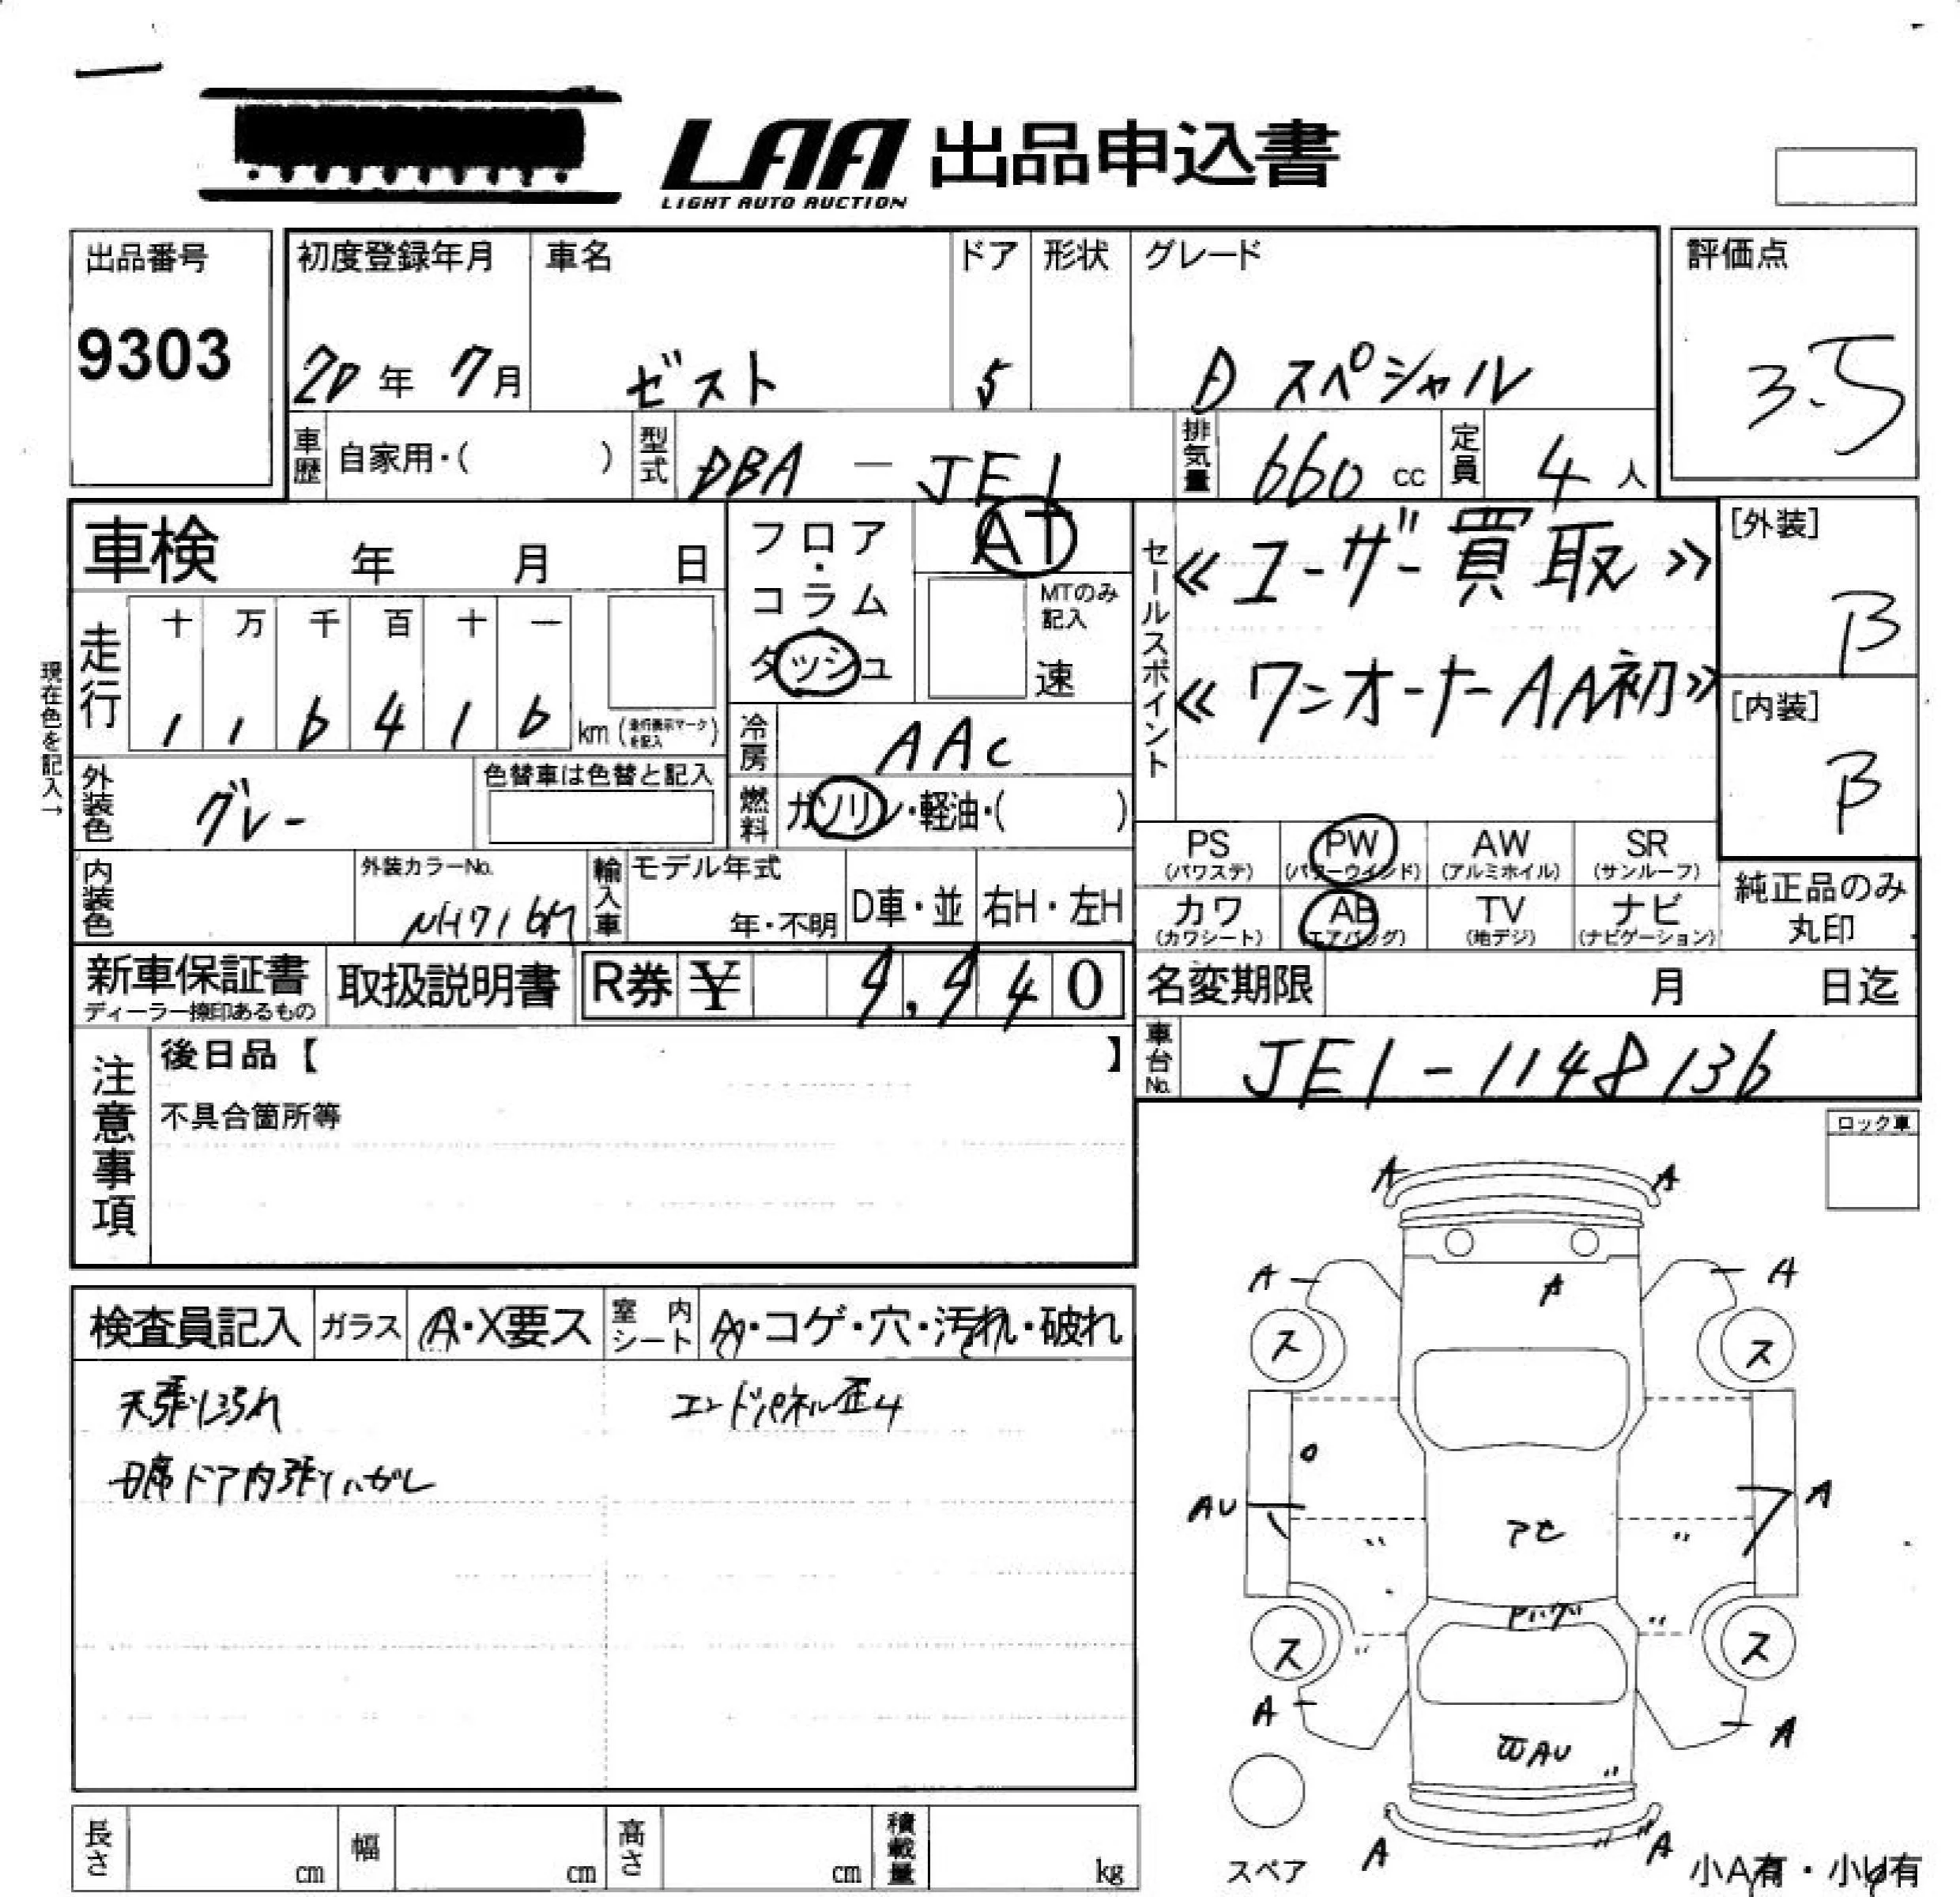 LAA 出品申込書
LIGHT AUTO AUCTION
出品番号
9303
初度登録年月
20年 7月
車名
ゼスト
ドア
5
形状
グレード
D スペシャル
評価点
3.5
車歴
自家用・( )
型式
DBA - JE1
排気量
660 cc
定員
4 人
車検 年 月 日
フロア・
コラム・
ダッシュ
AT
MTのみ
記入
速
セールスポイント
≪ユーザー買取≫
≪ワンオーナーAA初≫
[外装]
B
[内装]
B
現在色を記入→
走行
十 万 千 百 十 一
1 1 6 4 1 6 km (走行表示マークを記入)
冷房
AAC
外装色
グレー
色替車は色替と記入
燃料
ガソリン・軽油・( )
PS
(パワステ)
PW
(パワーウインド)
AW
(アルミホイル)
SR
(サンルーフ)
カワ
(カワシート)
AB
(エアバッグ)
TV
(地デジ)
ナビ
(ナビゲーション)
純正品のみ
丸印
内装色
外装カラーNo.
NH716M
輸入車
モデル年式
年・不明
D車・並
右H・左H
新車保証書
ディーラー捺印あるもの
取扱説明書
R券 ¥ 9,940
名変期限 月 日迄
車台No.
JE1-1148136
注意事項
後日品【 】
不具合箇所等
ロック車
検査員記入
ガラス
A・X要ス
室内シート
・コゲ・穴・汚れ・破れ
天張汚れ
エンドパネル歪4
ドア内張りハガレ
A
A
A
A
A
ス
ス
AU
A
アセ
〃
〃
〃
〃
ス
ス
A
A
AU
〃
A
〃 〃
A
スペア
小A有・小U有
長さ cm
幅 cm
高さ cm
積載量 kg